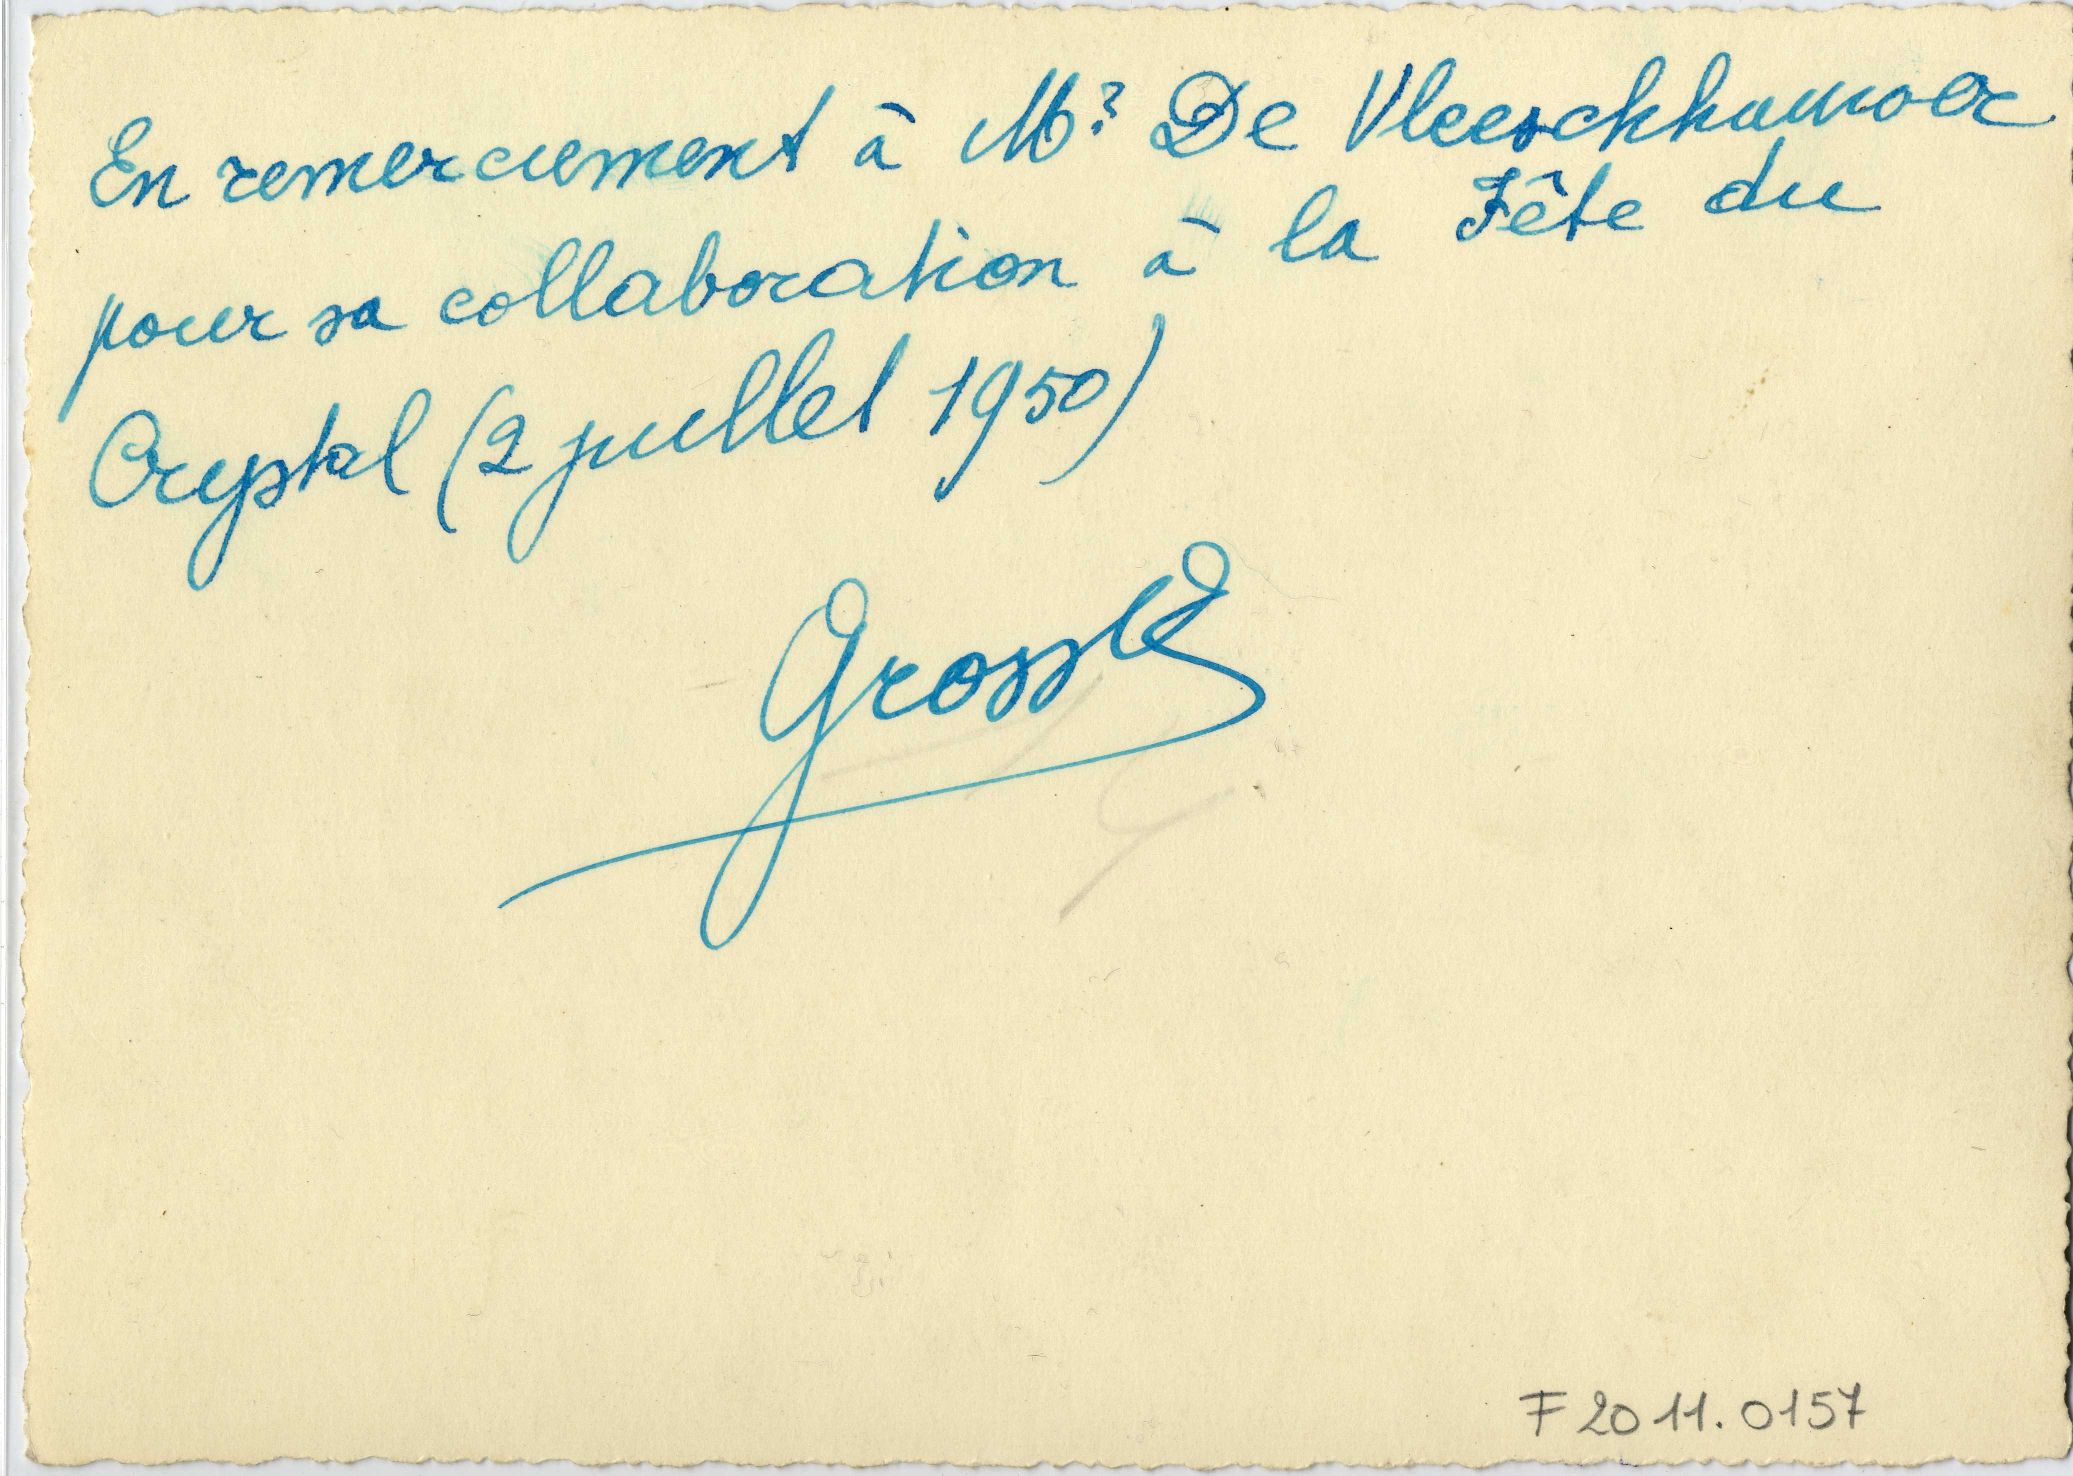 En remerciement à Mr De Vleeschhauwer
pour sa collaboration à la Fête du
Crystal (2 juillet 1950)
F 2011.0157